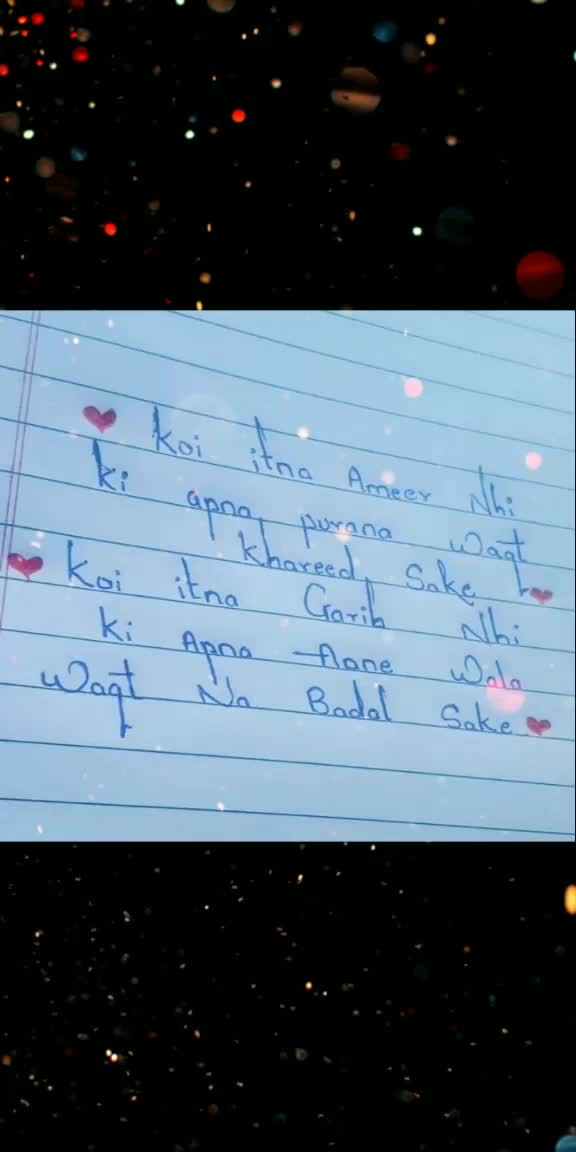 Koi itna Ameer Nhi
ki apna purana Waqt
khareed Sake
Koi itna Garib Nhi
ki Apna Aane Wala
Waqt Na Badal Sake